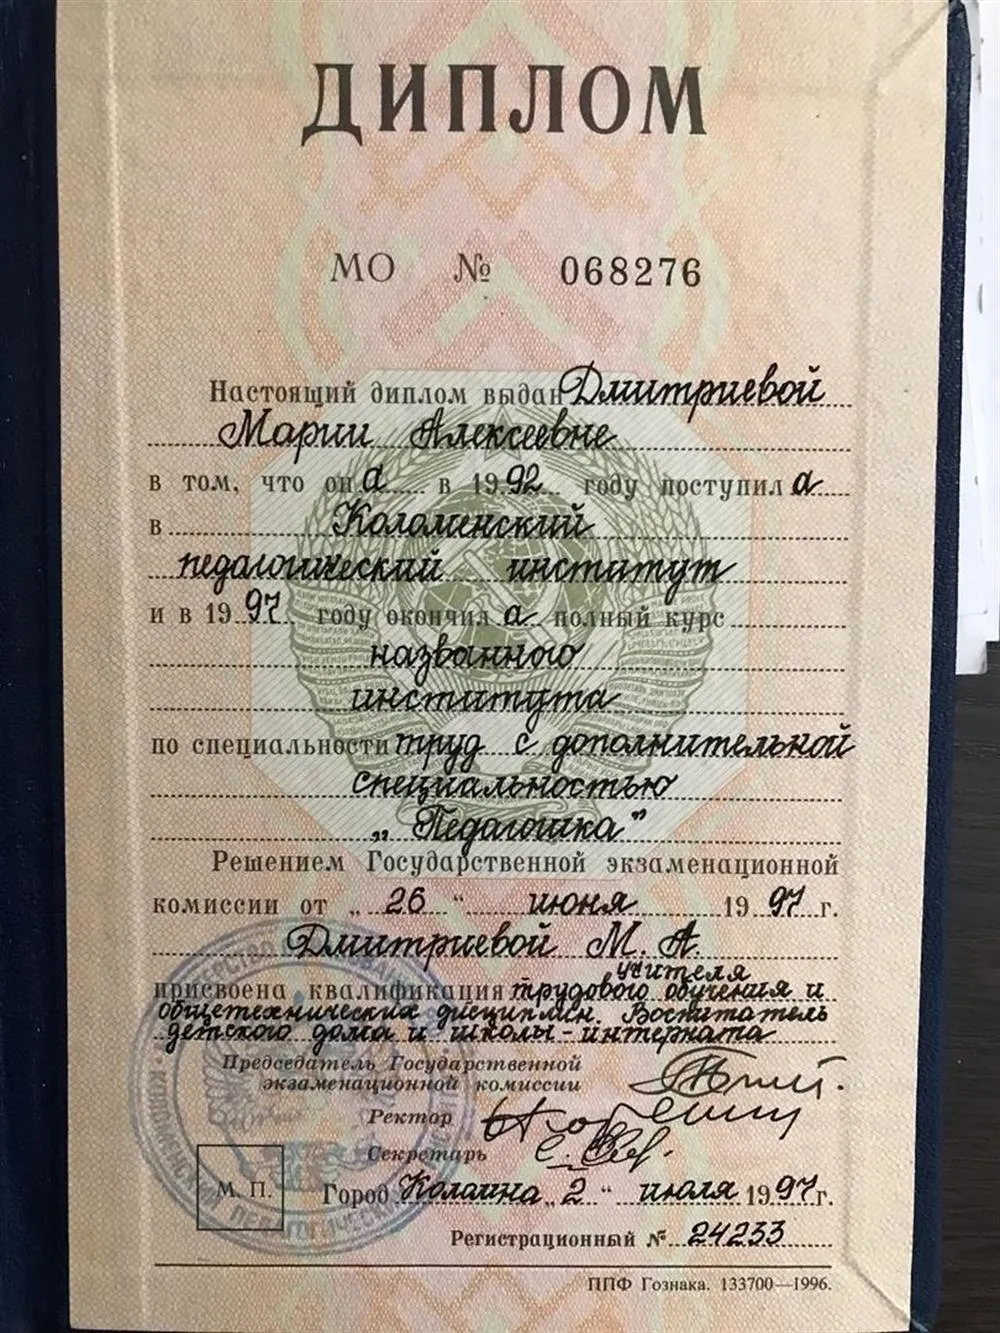 ДИПЛОМ
МО № 068276
Настоящий диплом выдан Дмитриевой
Марии Алексеевне
в том, что он а в 19 92 году поступил а
в Коломенский
педагогический институт
и в 19 97 году окончил а полный курс
названного
института
по специальности труд с дополнительной
специальностью
„Педагогика”
Решением Государственной экзаменационной
комиссии от „ 26 “ июня 19 97 г.
Дмитриевой М. А.
учителя
присвоена квалификация трудового обучения и
общетехнических дисциплин. Воспитатель
детского дома и школы-интерната
Председатель Государственной
экзаменационной комиссии
Ректор
Секретарь
М. П. Город Коломна „ 2 “ июля 19 97 г.
Регистрационный № 24233
ППФ Гознака. 133700—1996.